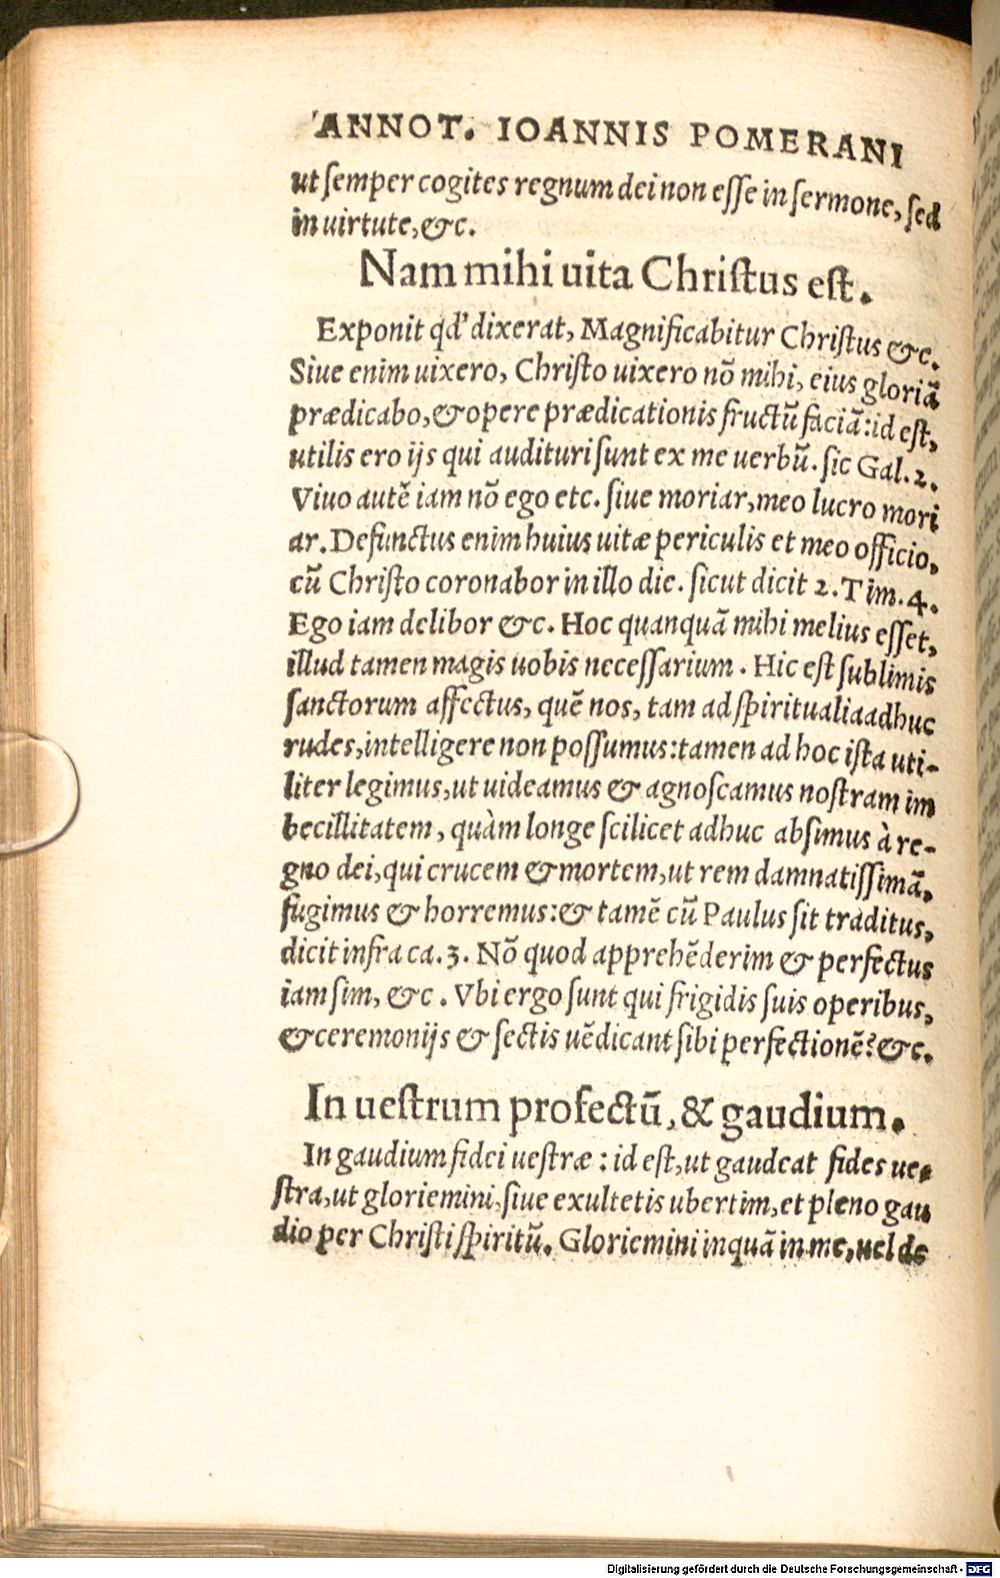 ANNOT. IOANNIS POMERANI
ut ſemper cogites regnum dei non eſſe in ſermone, ſed
in uirtute, &c.
Nam mihi uita Chriſtus eſt.
Exponit qd' dixerat, Magnificabitur Chriſtus &c.
Siue enim uixero, Chriſto uixero nō mihi, eius gloriā
prædicabo, & opere prædicationis fructū faciā: id eſt,
utilis ero ijs qui audituri ſunt ex me uerbū. ſic Gal. 2.
Viuo autē iam nō ego etc. ſiue moriar, meo lucro mori
ar. Defunctus enim huius uitæ periculis et meo officio,
cū Chriſto coronabor in illo die. ſicut dicit 2. Tim. 4.
Ego iam delibor &c. Hoc quanquā mihi melius eſſet,
illud tamen magis uobis neceſſarium. Hic eſt ſublimis
ſanctorum affectus, quē nos, tam ad ſpiritualia adhuc
rudes, intelligere non poſſumus: tamen ad hoc iſta uti-
liter legimus, ut uideamus & agnoſcamus noſtram im
becillitatem, quàm longe ſcilicet adhuc abſimus à re-
gno dei, qui crucem & mortem, ut rem damnatiſſimā,
fugimus & horremus: & tamē cū Paulus ſit traditus,
dicit infra ca. 3. Nō quod apprehēderim & perfectus
iam ſim, &c. Vbi ergo ſunt qui frigidis ſuis operibus,
& ceremonijs & ſectis uēdicant ſibi perfectionē? &c.
In ueſtrum profectū, & gaudium.
In gaudium fidei ueſtræ: id eſt, ut gaudeat fides ue-
ſtra, ut gloriemini, ſiue exultetis ubertim, et pleno gau
dio per Chriſti ſpiritū. Gloriemini inquā in me, uel de
Digitalisierung gefördert durch die Deutsche Forschungsgemeinschaft - DFG